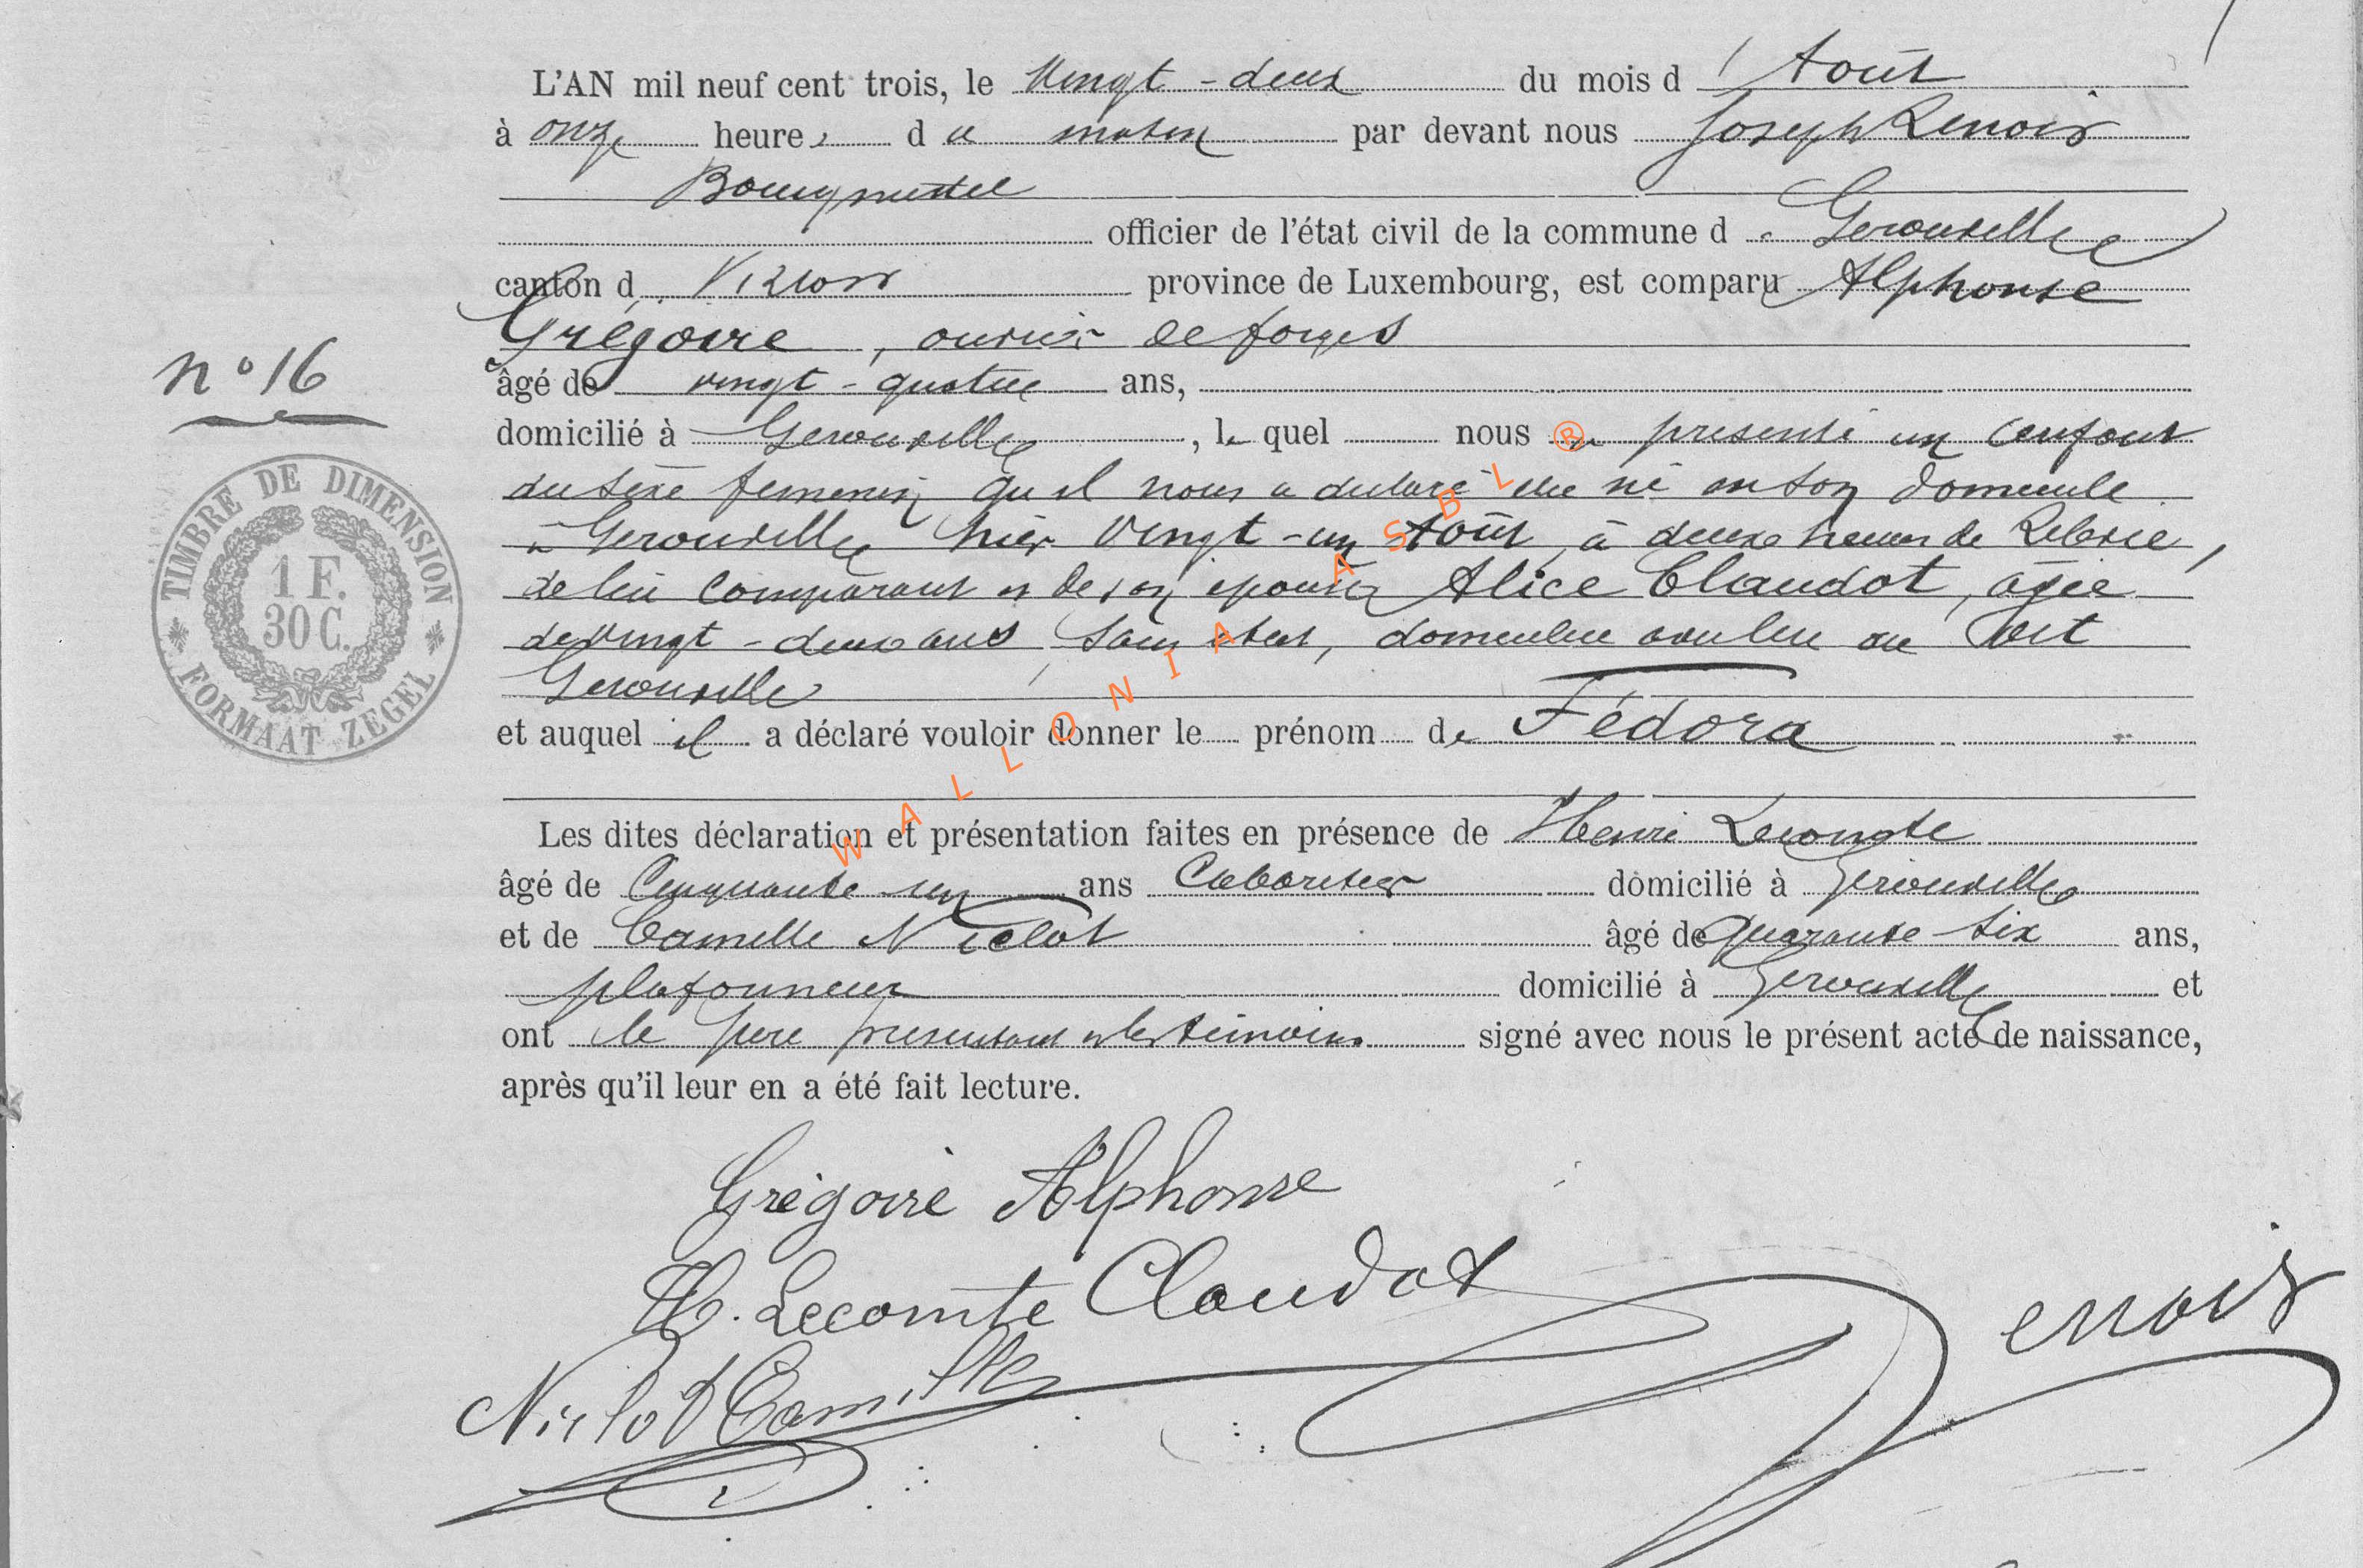 L'AN mil neuf cent trois, le Vingt-deux du mois d'Août
à onze heures du matin par devant nous Joseph Lenoir
Bourgmestre
officier de l'état civil de la commune de Gerouville
canton de Virton province de Luxembourg, est comparu Alphonse
Grégoire, ouvrier de forges
n° 16
âgé de vingt-quatre ans,
domicilié à Gerouville, le quel nous a présenté un enfant
du sexe féminin qu'il nous a déclaré être né en son domicile
à Gerouville hier Vingt-un Août, à deux heures de
de lui comparant et de son épouse Alice Claudot, âgée
de vingt-deux ans, sans état, domiciliée avec lui au dit
Gerouville
et auquel il a déclaré vouloir donner le prénom de Fédora
Les dites déclaration et présentation faites en présence de Henri Lecomte
âgé de Cinquante-un ans Cabaretier domicilié à Gerouville
et de Camille Niclot âgé de quarante-six ans,
plafonneur domicilié à Gerouville et
ont le père présentant et les témoins signé avec nous le présent acte de naissance,
après qu'il leur en a été fait lecture.
Grégoire Alphonse
H. Lecomte Claudot
Lenoir
Niclot Camille
TIMBRE DE DIMENSION
1 F.
30 C.
FORMAAT ZEGEL
WALLONIA ASBL ®